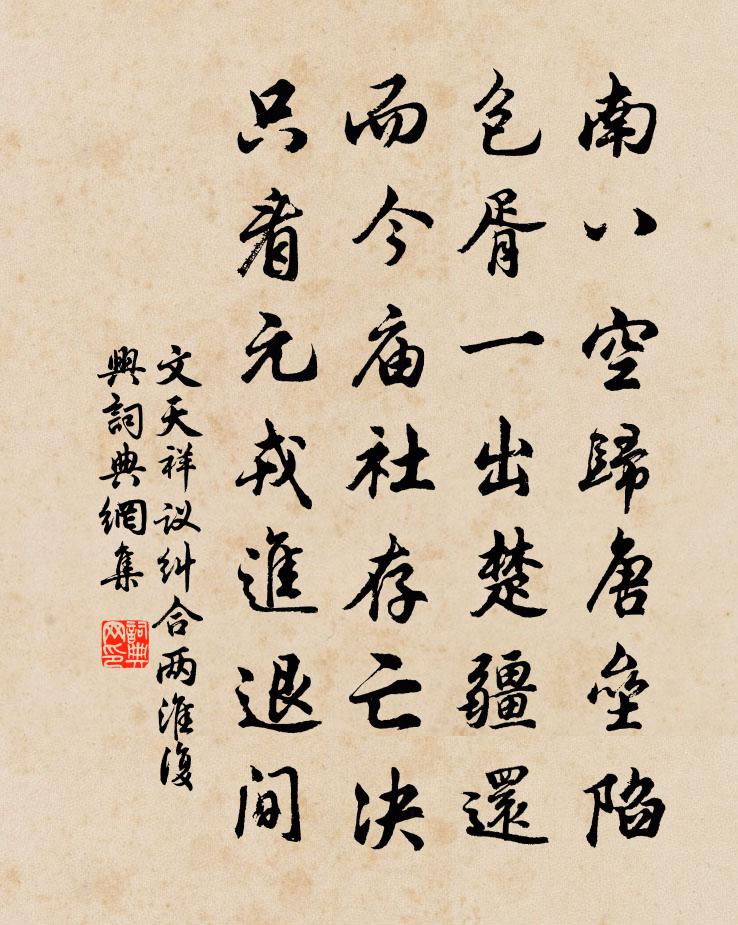 南八空歸唐壘陷
包胥一出楚疆還
而今庙社存亡決
只看元戎進退間
文天祥议纠合两淮復
興詞典網集
詞典网印